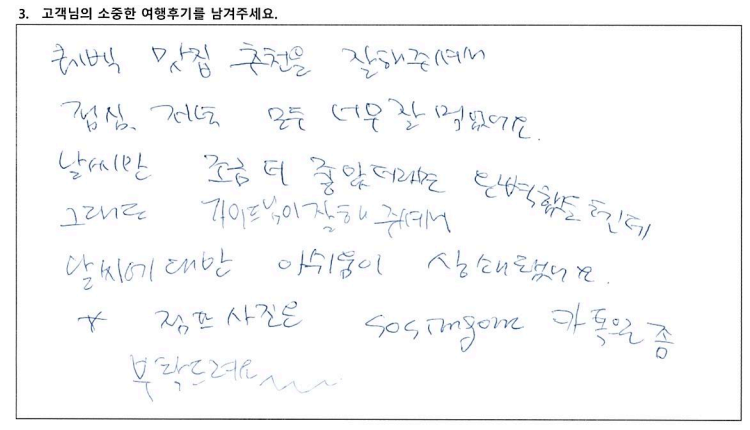 3. 고객님의 소중한 여행후기를 남겨주세요.
퀘벡 맛집 추천을 잘해주셔서
점심, 저녁 모두 너무 잘 먹었어요.
날씨만 조금 더 좋았더라면 완벽했을 터인데
그래도 가이드님이 잘해 주셔서
날씨에 대한 아쉬움이 상쇄됐네요.
* 점프 사진은 카톡으로 좀
부탁드려요~~~